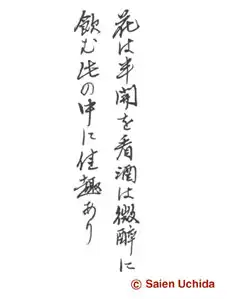 花は半開を看酒は微酔に
飲む此の中に佳趣あり
© Saien Uchida